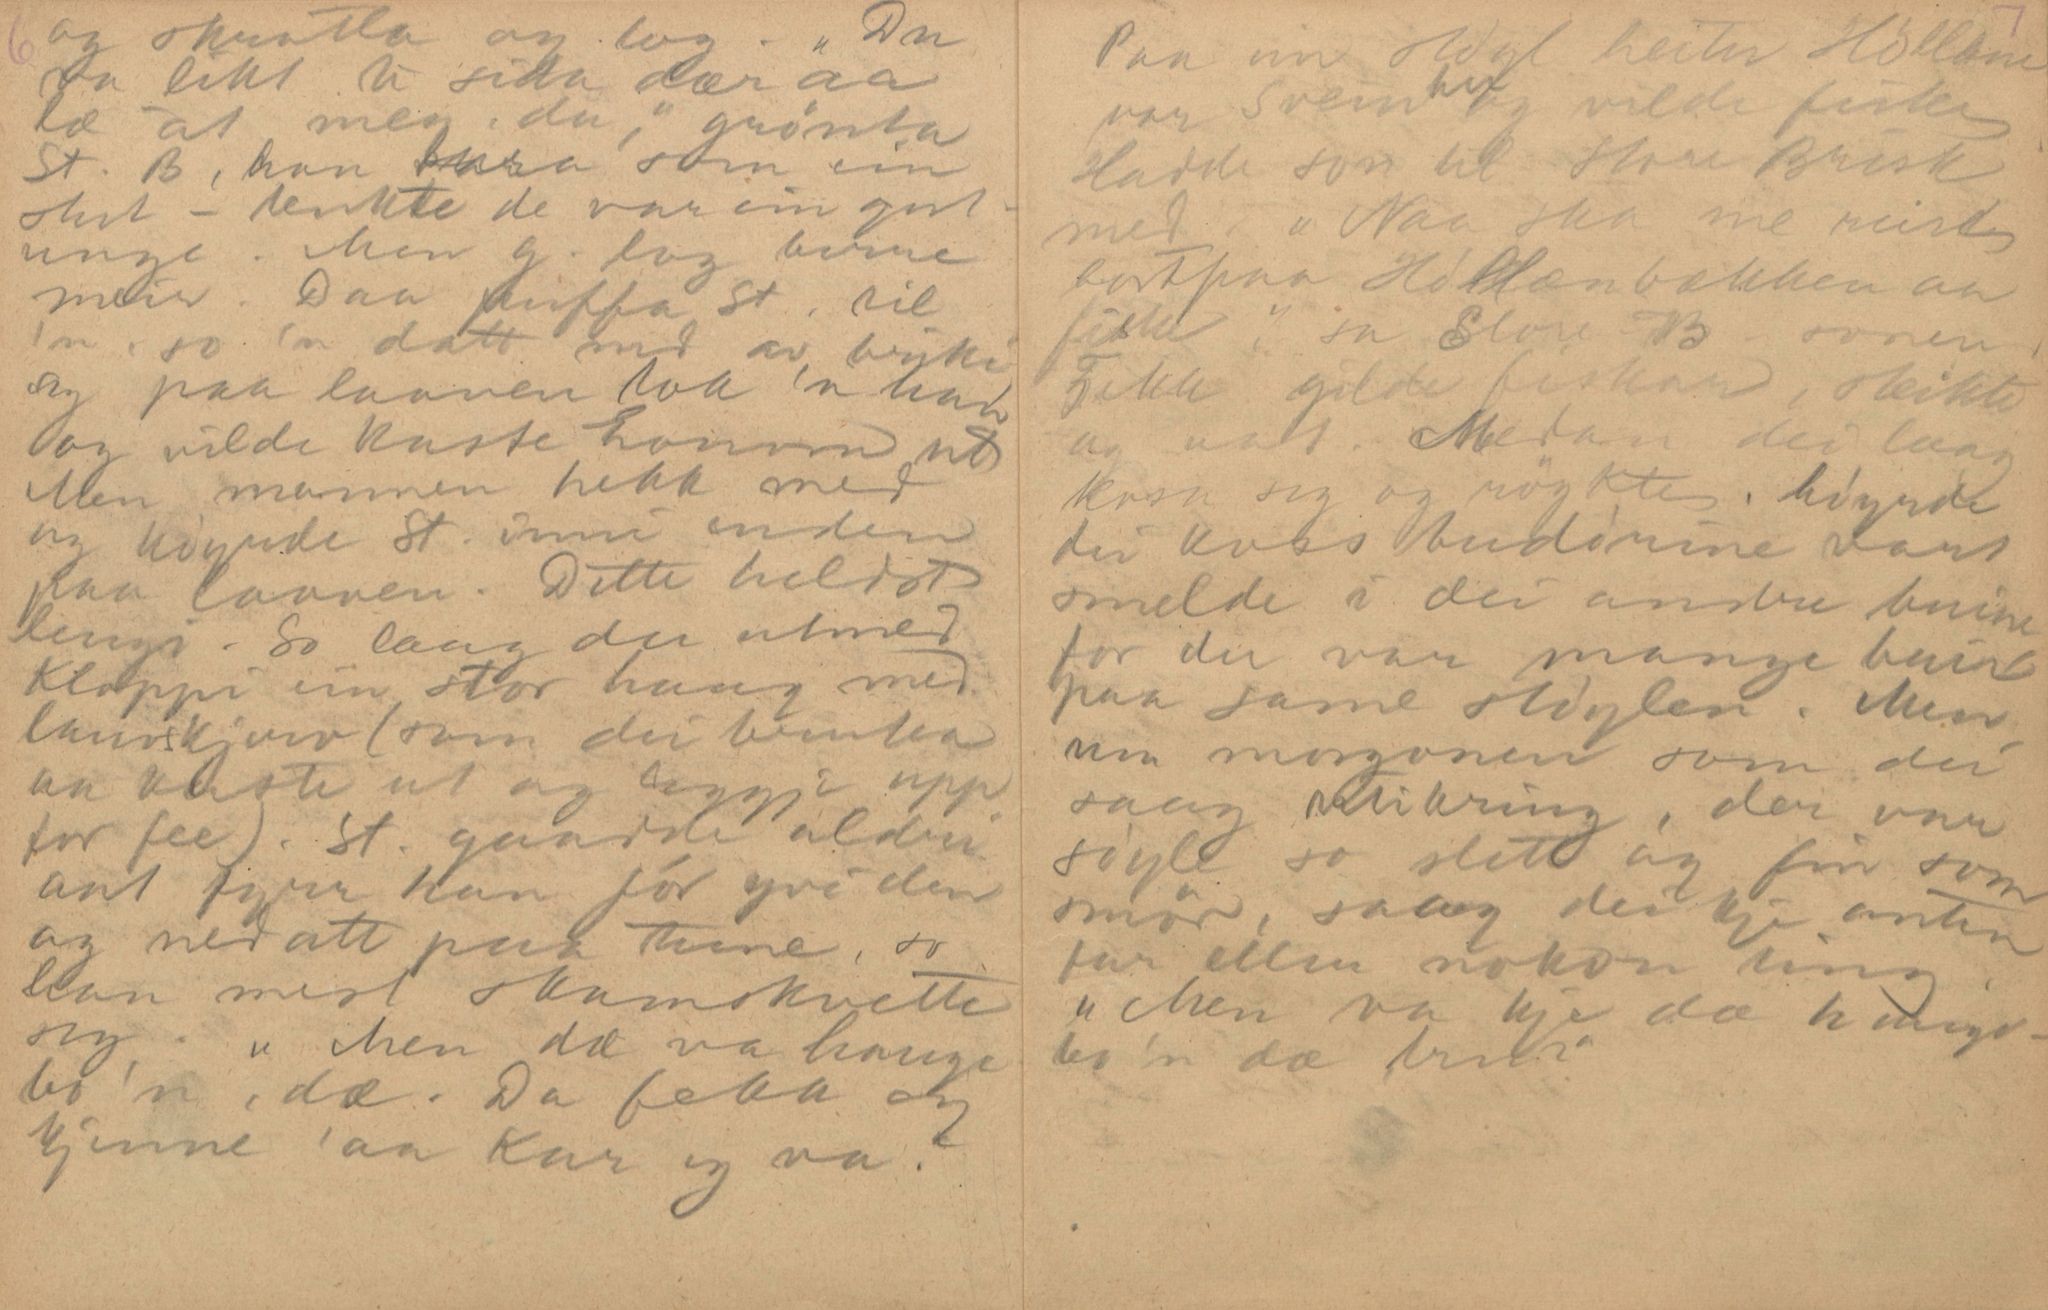 6
og skratla og log. "Du
va likt te sitta dær aa
læ åt meg, du," grønta
St. B, han som ein
stut – tenkte de var ein gut-
unge. Men g. log berre
meir. Daa puffa St. til
'n, so 'n datt ned av briki
og paa laaven tok 'n han
og vilde kaste honom ut
Men mannen hekk med
og köyrde St. inni enden
paa laaven. Dette heldt
lengi. So laag der utmed
Kloppi ein stor haug med
lauvskjerv (som dei bruka
aa kaste ut og leggje upp
for fee). St. gaadde aldri
ant fyrr han fór yvi den
og nedatt paa tune, so
han mest skamskvette
seg. "Men dæ va hauge
bo'n, dæ. Da fekk eg
kjenne 'aa Kar eg va."
7
Paa ein stöyl heiter Höllane
var Svein her og vilde fiske
Hadde son til Store Brisk
med. "Naa ska me reise
bortpaa Höllænbækken aa
fiske," sa Store B. sonen.
Fekk gilde fiskar, steikte
og aat. Medan dei laag
kosa seg og röykte, höyrde
dei koss budörine vart
smelde i dei andre buine
for der var mange buir
paa same stöylen. Men
um morgonen som dei
saag ikring, der var
söyle so slett og fin som
smör, saag dei kje anten
far eller nokon ting.
"Men va kje dæ hauge-
bo'n dæ